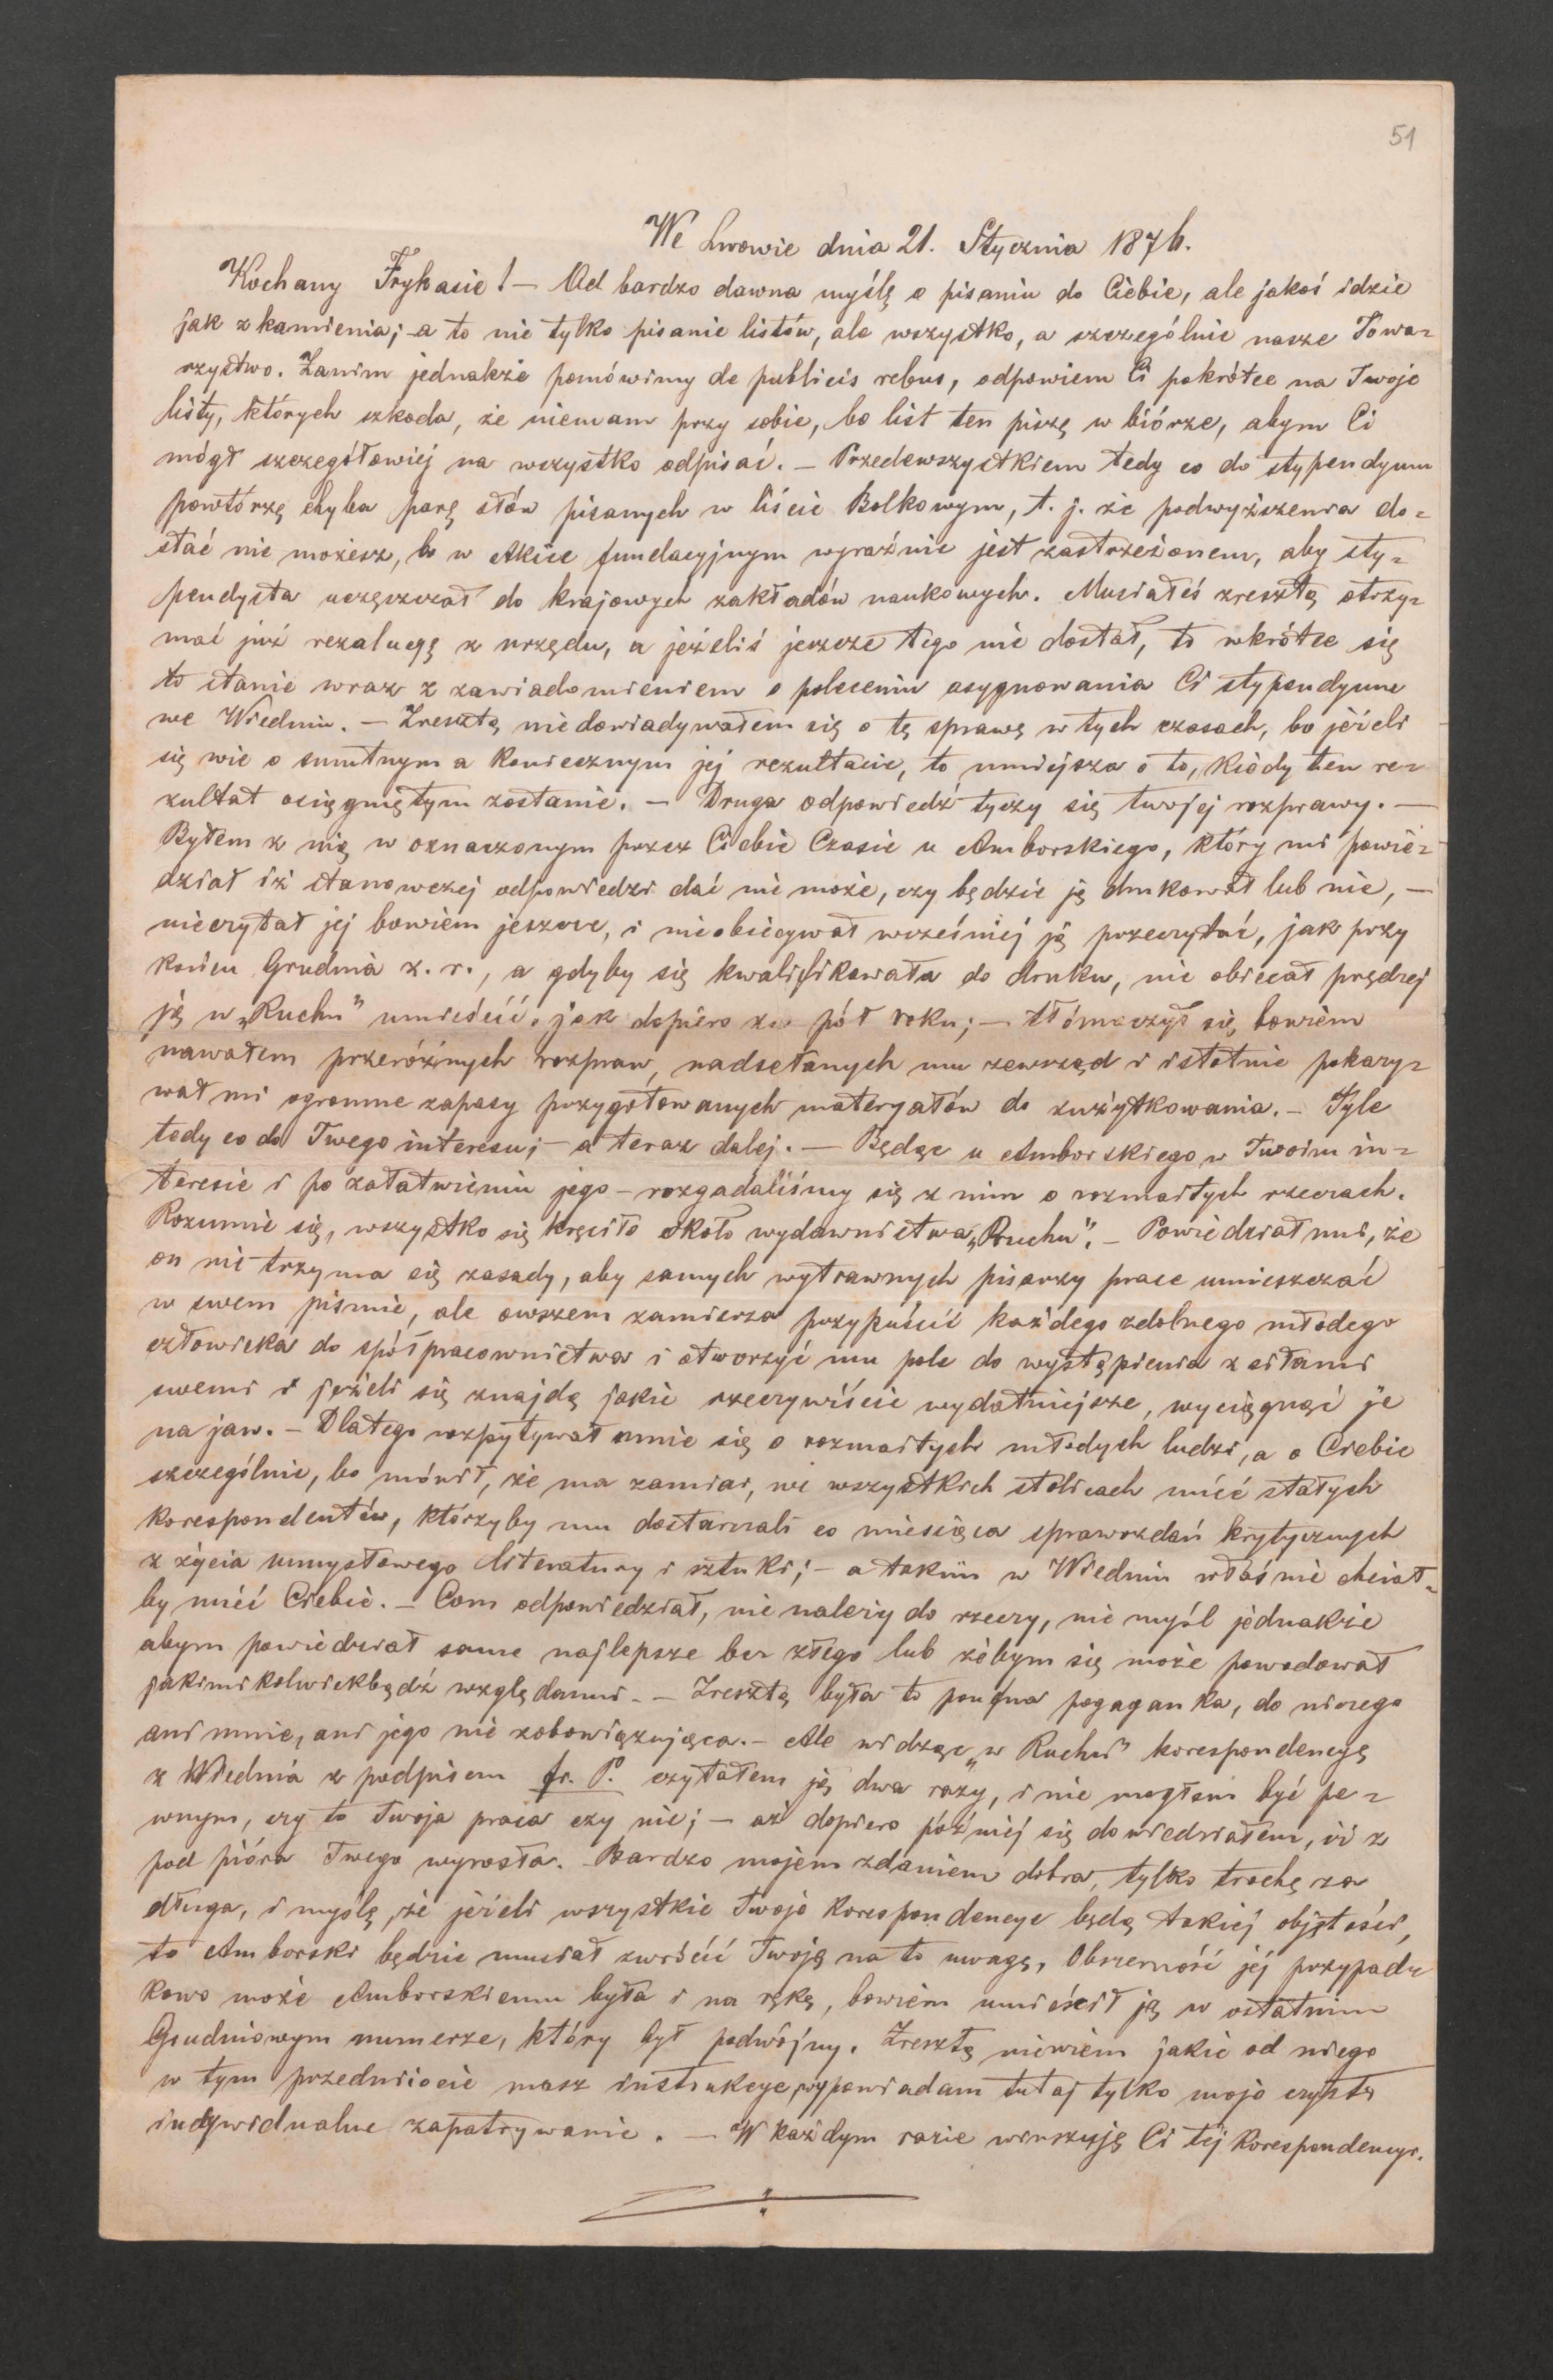 51
We Lwowie dnia 21. Stycznia 1876.
Kochany Frykasie! — Od bardzo dawna myślę o pisaniu do Ciebie, ale jakoś idzie
jak z kamienia; a to nie tylko pisanie listów, ale wszystko, a szczególnie nasze Towa=
rzystwo. Zanim jednakże pomówimy de publicis rebus, odpowiem Ci pokrótce na Twoje
listy, których szkoda, że niemam przy sobie, bo list ten piszę w biórze, abym Ci
mógł szczegółowiej na wszystko odpisać. — Przedewszystkiem tedy co do stypendyum
powtórzę chyba parę słów pisanych w liście Bolkowym, t. j. że podwyższenia do=
stać nie możesz, bo w Akcie fundacyjnym wyraźnie jest zastrzeżonem, aby sty=
pendysta uczęszczał do krajowych zakładów naukowych. Musiałeś zresztą otrzy=
mać już rezolucyę z urzędu, a jeżeliś jeszcze tego nie dostał, to wkrótce się
to stanie wraz z zawiadomieniem o poleceniu asygnowania Ci stypendyum
we Wiedniu. — Zresztą niedowiadywałem się o tę sprawę w tych czasach, bo jeżeli
się wie o smutnym a koniecznym jej rezultacie, to mniejsza o to, kiedy ten re=
zultat osięgniętym zostanie. — Druga odpowiedź tyczy się twojej rozprawy. —
Byłem z nią w oznaczonym przez Ciebie Czasie u Amborskiego, który mi powie=
dział iż stanowczej odpowiedzi dać nie może, czy będzie ją drukował lub nie, —
nieczytał jej bowiem jeszcze, i nieobiecywał wcześniej ją przeczytać, jak przy
końcu Grudnia z. r., a gdyby się kwalifikowała do druku, nie obiecał prędzej
ją w „Ruchu" umieścić, jak dopiero za pół roku; — tłómaczył się bowiem
nawałem przeróżnych rozpraw, nadsełanych mu zewsząd i istotnie pokazy=
wał mi ogromne zapasy przygotowanych materyałów do zużytkowania. — Tyle
tedy co do Twego interesu; — a teraz dalej. — Będąc u Amborskiego w Twoim in=
teresie i po załatwieniu jego — rozgadaliśmy się z nim o rozmaitych rzeczach.
Rozumie się, wszystko się kręciło około wydawnictwa „Ruchu". — Powiedział mi, że
on nie trzyma się zasady, aby samych wytrawnych pisarzy prace umieszczać
w swem piśmie, ale owszem zamierza przypuścić każdego zdolnego młodego
człowieka do spółpracownictwa i otworzyć mu pole do wystąpienia z siłami
swemi i jeżeli się znajdą jakie rzeczywiście wydatniejsze, wyciągnąć je
na jaw. — Dlatego rozpytywał mnie się o rozmaitych młodych ludzi, a o Ciebie
szczególnie, bo mówił, że ma zamiar, we wszystkich stolicach mieć stałych
korespondentów, którzyby mu dostarczali co miesiąca sprawozdań krytycznych
z życia umysłowego literatury i sztuki; — a takim w Wiedniu właśnie chciał=
by mieć Ciebie. — Com odpowiedział, nie należy do rzeczy, nie myśl jednakże
abym powiedział same najlepsze bez złego lub żebym się może powodował
jakimikolwiekbądź względami. — Zresztą była to poufna pogaganka, do niczego
ani mnie, ani jego nie zobowiązująca. — Ale widząc „w Ruchu" korespondencyę
z Wiednia z podpisem fr. P. czytałem ją dwa razy, i nie mogłem być pe=
wnym, czy to twoja praca czy nie; — aż dopiero później się dowiedziałem, iż z
pod pióra Twego wyrosła. Bardzo mojem zdaniem dobra, tylko trochę za
długa, i myślę, że jeżeli wszystkie Twoje korespondencye będą takiej objętości,
to Amborski będzie musiał zwrócić Twoją na to uwagę, Obszerność jej przypad=
kowo może Amborskiemu była i na rękę, bowiem umieścił ją w ostatnim
Grudniowym numerze, który był podwójny. Zresztą niewiem jakie od niego
w tym przedmiocie masz instrukcye, wypowiadam tutaj tylko moje czysto
indywidualne zapatrywanie. — W każdym razie winszuję Ci tej Korespondencyi.